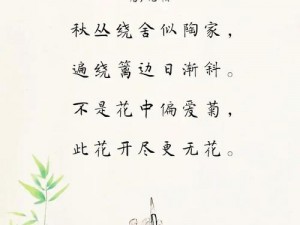 秋丛绕舍似陶家，
遍绕篱边日渐斜。
不是花中偏爱菊，
此花开尽更无花。